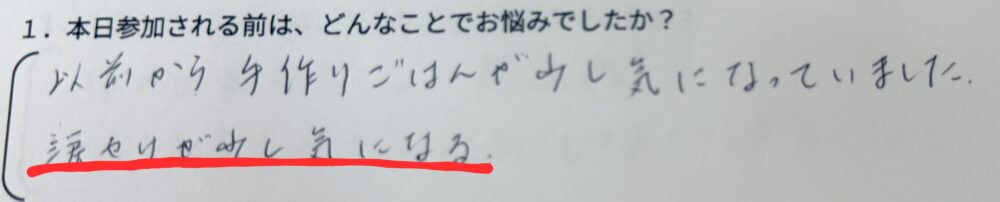 1. 本日参加される前は、どんなことでお悩みでしたか？
以前から手作りごはんが少し気になっていました.
涙やけが少し気になる.